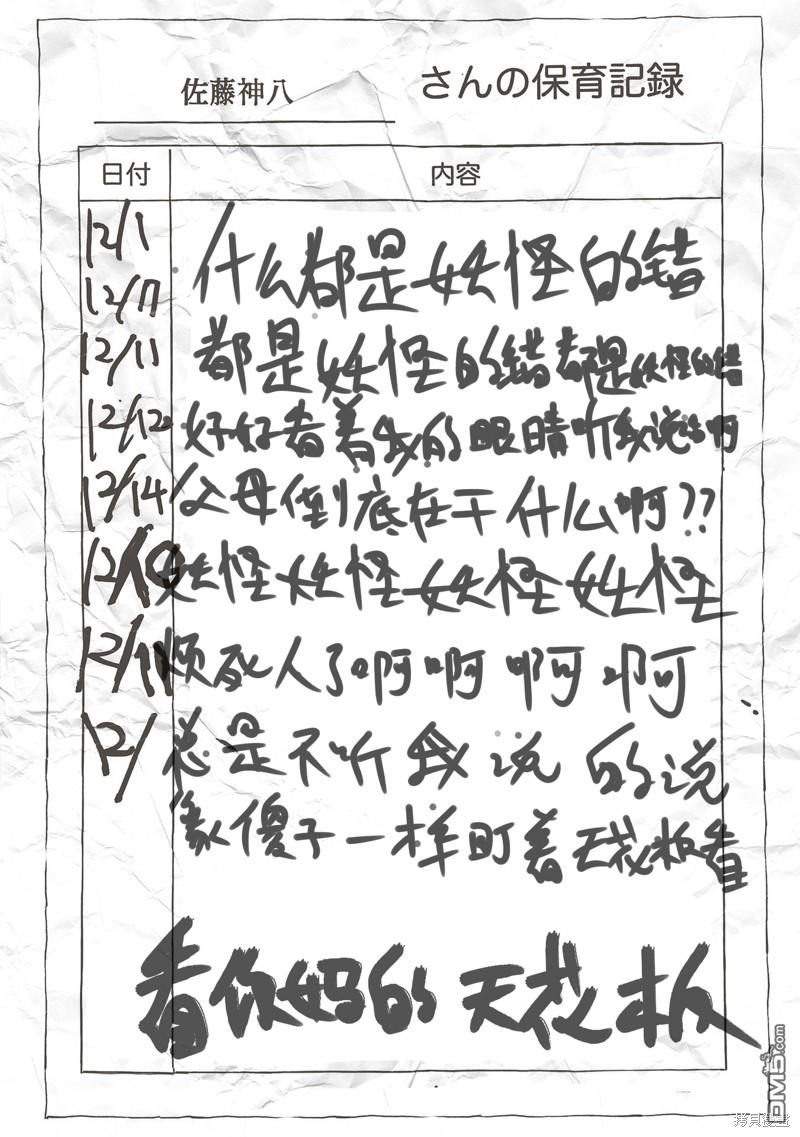 佐藤神八 さんの保育記録
日付 内容
12/1 什么都是妖怪的错
12/7
12/11 都是妖怪的错都是妖怪的错
12/12 好好看着我的眼睛听我说话啊
12/14 父母倒底在干什么啊??
妖怪妖怪妖怪妖怪
烦死人了啊啊啊啊
12/ 总是不听我说的说
象傻子一样盯着天花板看
看你妈的天花板
DM5.com
拷贝漫画